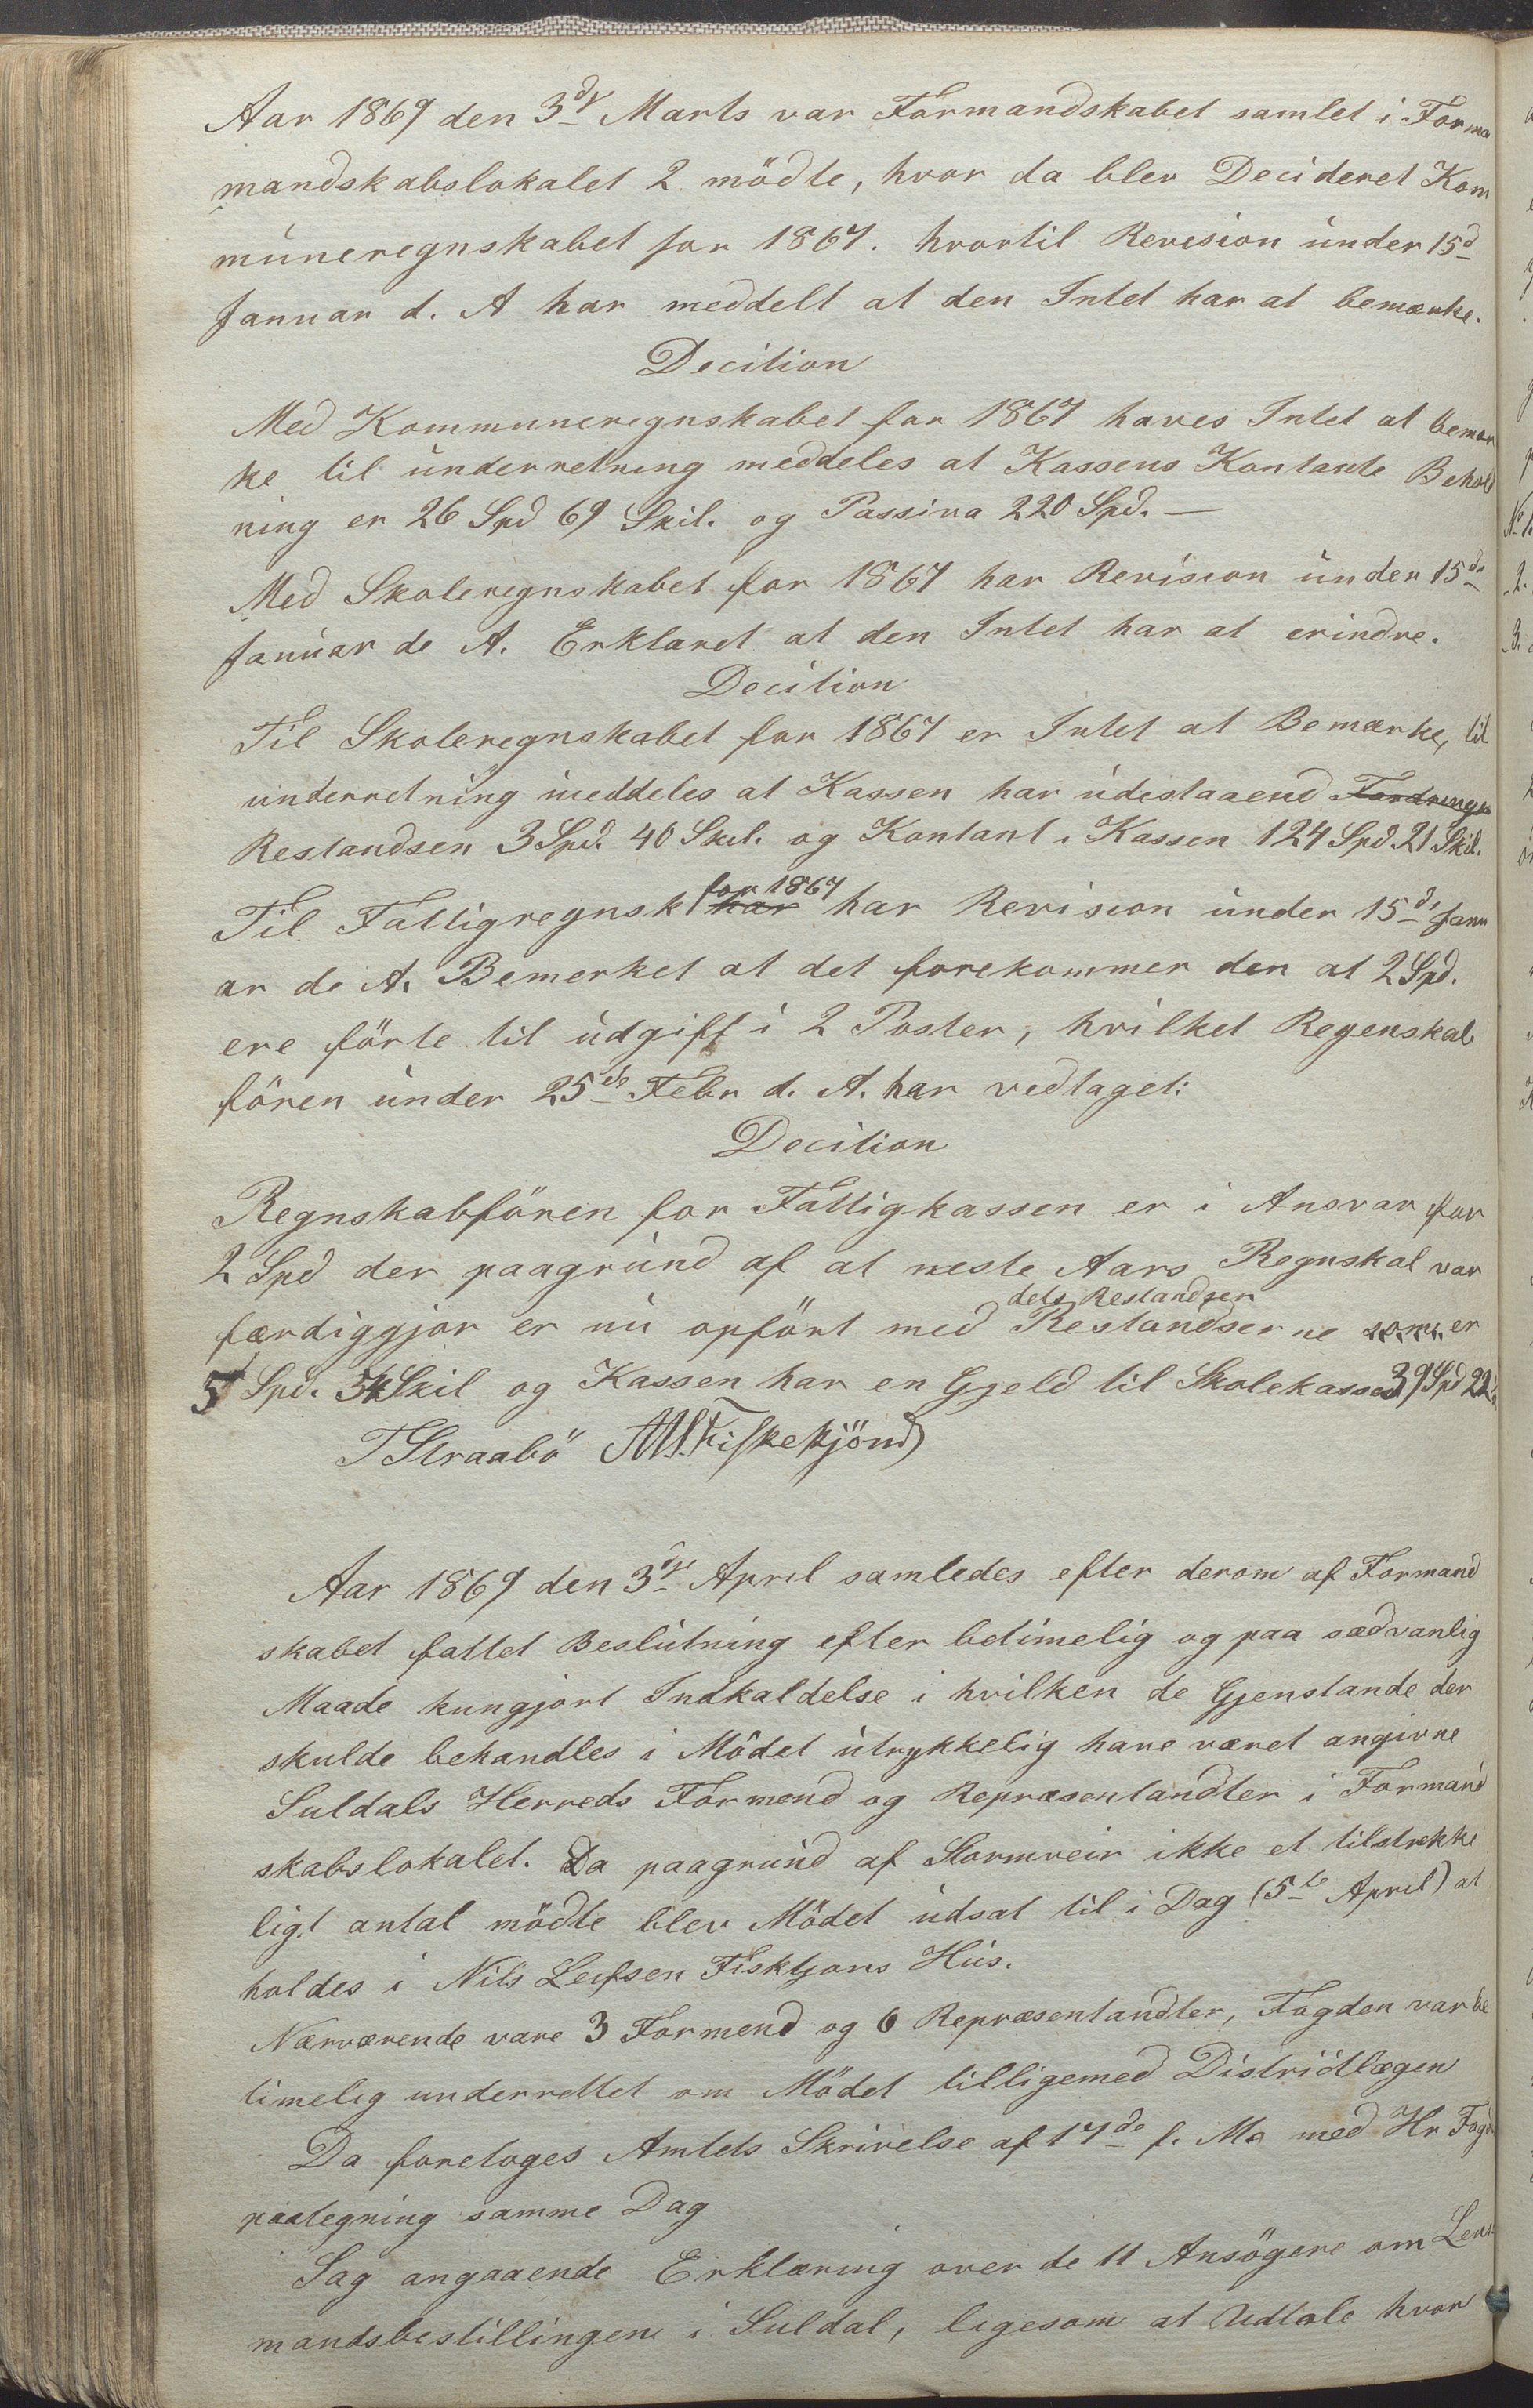 Aar 1869 den 3d^r Marts var Formandskabet samlet i Forma
mandskabslokalet 2 mödte, hvor da blev Decideret Kom
muneregnskabet for 1867. hvortil Revision under 15d
Januar d. A har meddelt at den Intet har at bemærke.
Decition
Med Kommuneregnskabet for 1867 haves Intet at bemær
ke til underretning meddeles at Kassens Kontante Behold
ning er 26 Spd 69 Skil. og Passiva 220 Spd. —
Med Skoleregnskabet for 1867 har Revision under 15de
Januar de A. Erklaret at den Intet har at erindre.
Decition
Til Skoleregnskabet for 1867 er Intet at Bemærke, til
underretning meddeles at Kassen har udestaaend Fordringer
Restandsen 3 Spd. 40 Skil. og Kontant i Kassen 124 Spd. 21 Skil.
Til Fattigregnsk har for 1867 har Revision under 15de Janu
ar de A. Bemerket at det forekommer den at 2 Spd.
ere förte til udgift i 2 Poster, hvilket Regenskab
fören under 25de Febr d. A. har vedtaget:
Decition
Regnskabfören for Fattigkassen er i Ansvar for
2 Spd der paagrund af at neste Aars Regnskal var
færdiggjor er nu opfört med Restandserne som er
dets Restandser
5 Spd. 34 Skil og Kassen har en Gjeld til Skolekassen 39 Spd 22
T Straabö Fiskekjönd
Aar 1869 den 3dje April samledes efter derom af Formand
skabet fattet Beslutning efter betimelig og paa sædvanlig
Maade kungjort Indkaldelse i hvilken de Gjenstande der
skulde behandles i Mödet utrykkelig have været angivne
Suldals Herreds Formend og Repræsentandter i Formand
skabslokalet. Da paagrund af Stormveir ikke et tilstrekke
ligt antal mödte blev Mödet udsat til i Dag (5te April) at
holdes i Nils Leifsen Fisktjons Hus.
Nærværende vare 3 Formend og 6 Repræsentandter, Fogden var be
timelig underrettet om Mödet tilligemed Distridtlægen
Da foretoges Amtets Skrivelse af 17de f. M. med Hr Fogd
paategning samme Dag
Sag angaaende Erklæring over de 11 Ansögere om Lens
mandsbestillingen i Suldal, ligesom at Udtale hvor